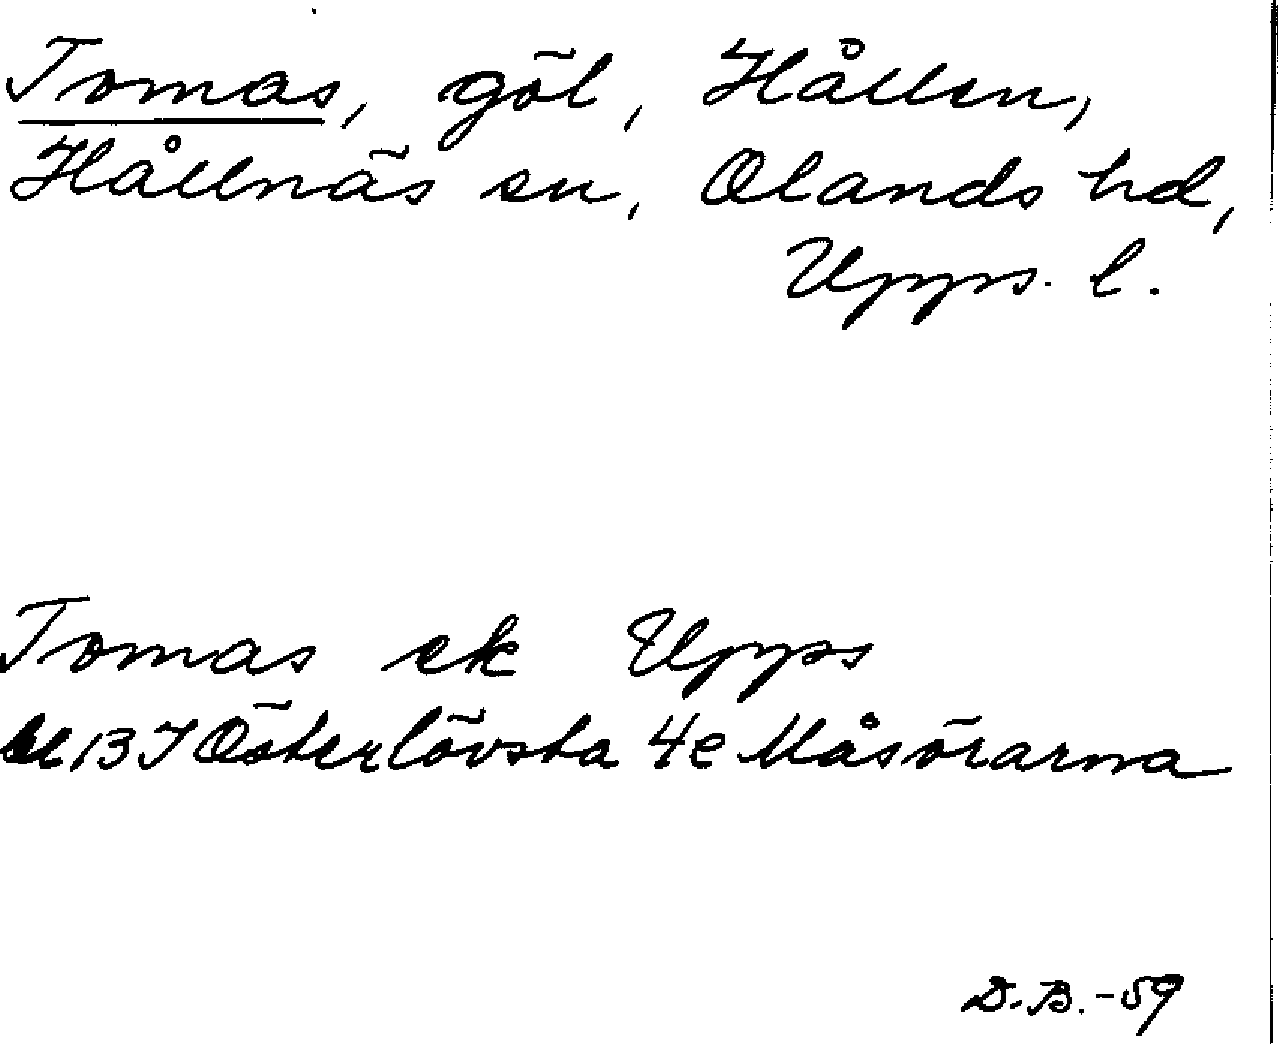 Tomas, göl, Hållen,
Hållnäs sn, Olands hd,
Upps. l.
Tomas ek Upps
bl 13 I Österlövsta 4e Måsörarna
D.B.-59